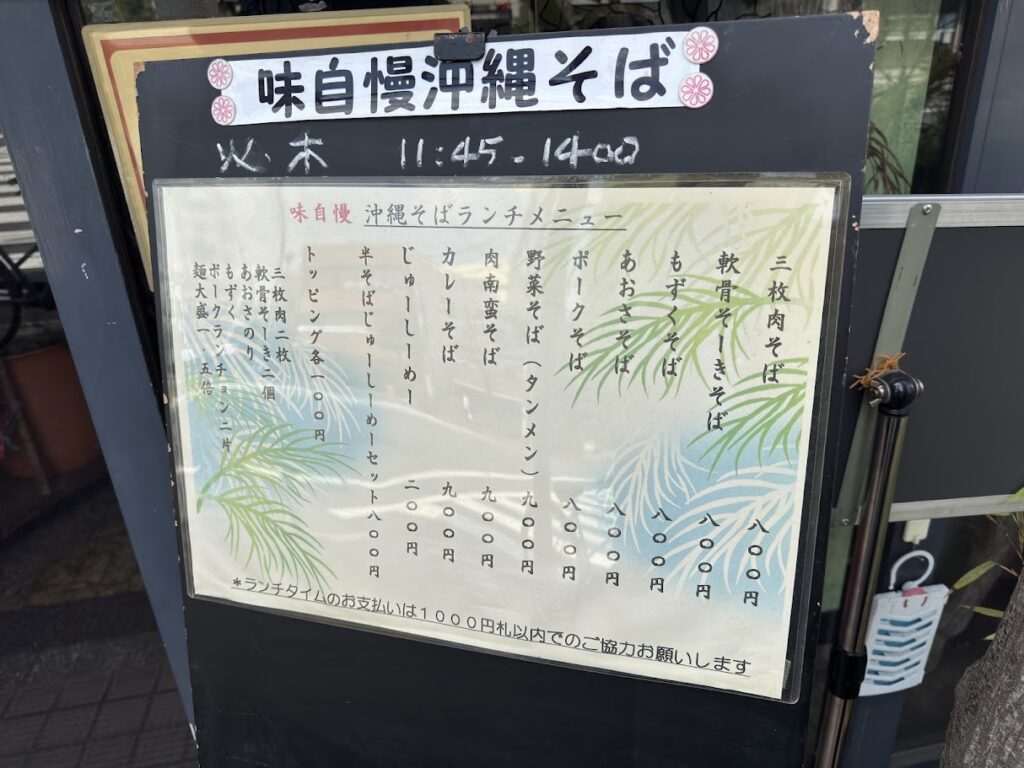 味自慢沖縄そば
火・木 11:45-14:00
味自慢 沖縄そばランチメニュー
三枚肉そば 八〇〇円
軟骨そーきそば 八〇〇円
もずくそば 八〇〇円
あおさそば 八〇〇円
ポークそば 八〇〇円
野菜そば(タンメン) 九〇〇円
肉南蛮そば 九〇〇円
カレーそば 九〇〇円
じゅーしーめー 二〇〇円
半そばじゅーしーめーセット八〇〇円
トッピング各一〇〇円
三枚肉二枚
軟骨そーき二個
あおさのり
もずく
ポークランチョン二片
麺大盛一.五倍
*ランチタイムのお支払いは1000円札以内でのご協力お願いします